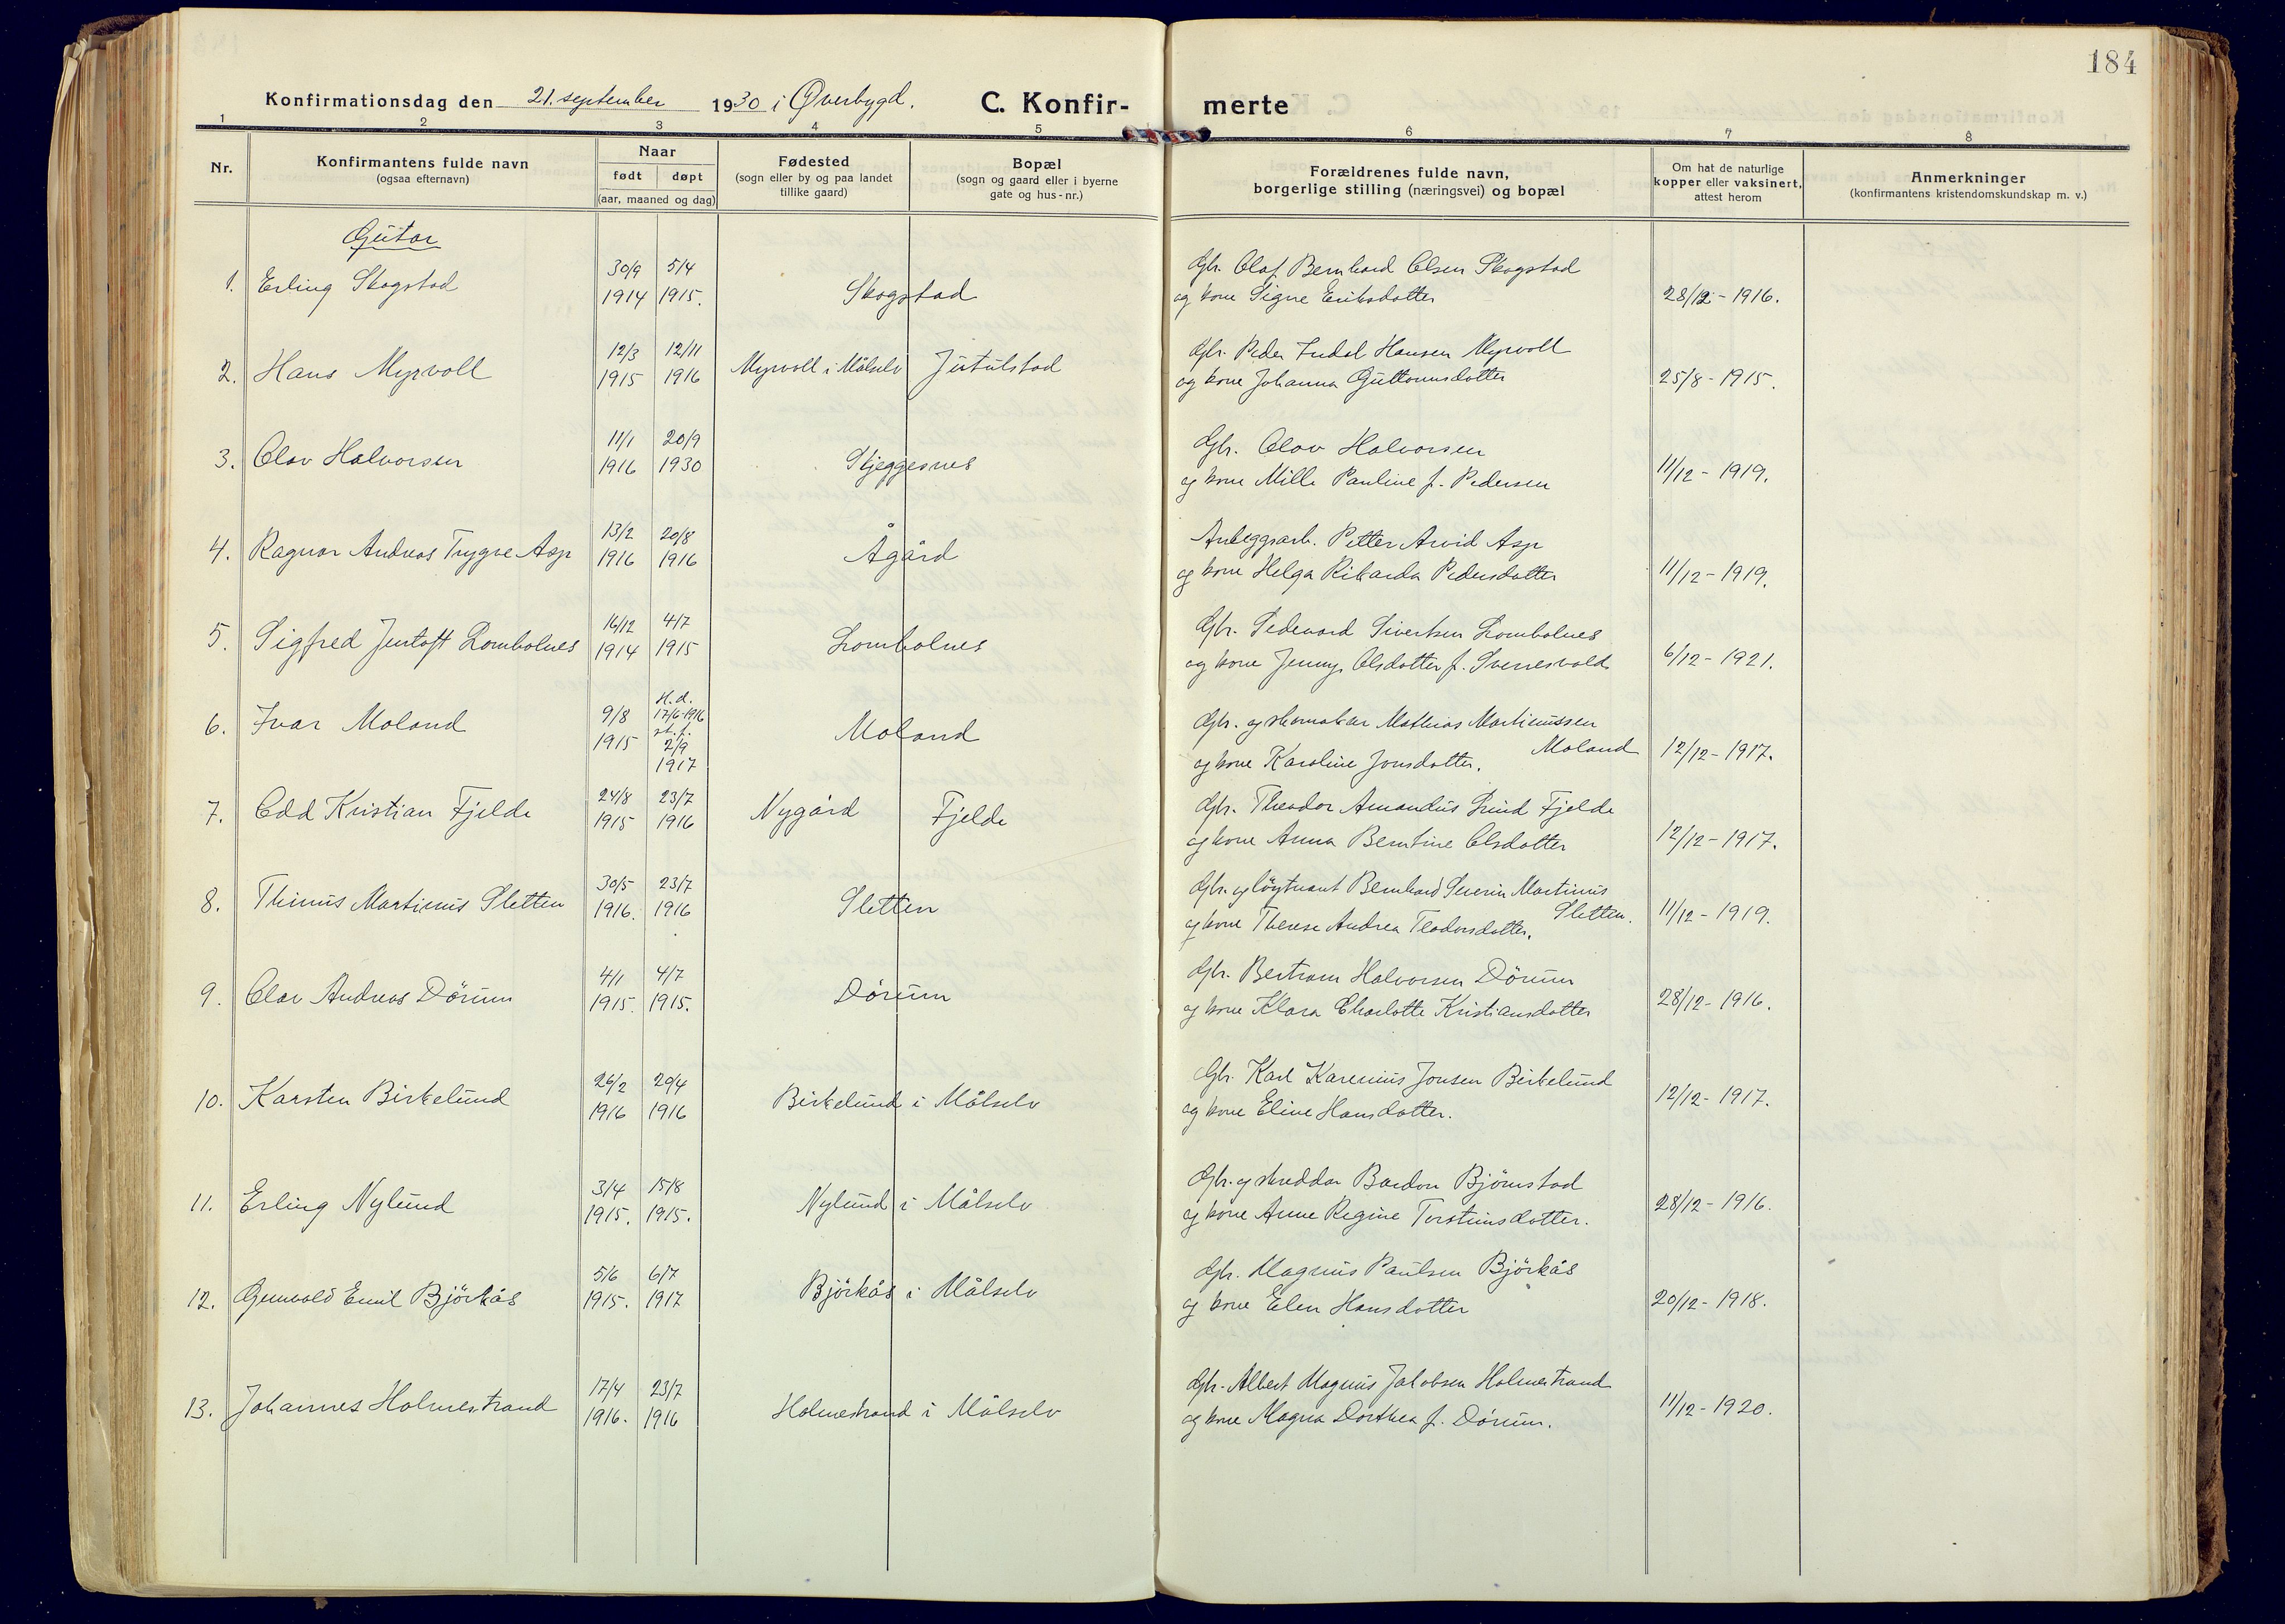 184
Konfirmationsdag den 21. september 1930 i Øverbygd. C. Konfir- merte
1 2 3 4 5 6 7 8
Nr.
Konfirmantens fulde navn
(ogsaa efternavn)
Naar
født døpt
(aar, maaned og dag)
Fødested
(sogn eller by og paa landet
tillike gaard)
Bopæl
(sogn og gaard eller i byerne
gate og hus-nr.)
Forældrenes fulde navn,
borgerlige stilling (næringsvei) og bopæl
Om hat de naturlige
kopper eller vaksinert,
attest herom
Anmerkninger
(konfirmantens kristendomskundskap m. v.)
Gutar
1. Erling Skogstad 30/9 1914 5/4 1915. Skogstad Gbr. Olaf Bernhard Olsen Skogstad
og kone Signe Eriksdotter 28/12 - 1916.
2. Hans Myrvoll 12/3 1915 12/11 1916 Myrvoll i Målselv Jutulstad Gbr. Peder Indal Hansen Myrvoll
og kone Johanna Guttormsdotter 25/8 - 1915.
3. Olav Halvorsen 11/1 1916 20/9 1930 Skjeggesnes Gbr. Olav Halvorsen
og kone Mille Pauline f. Pedersen 11/12 - 1919.
4. Ragnar Andreas Trygve Asp 13/2 1916 20/8 1916 Ågård Anleggsarb. Petter Arvid Asp
og kone Helga Rikarda Pedersdotter 11/12 - 1919.
5. Sigfred Jentoft Lombolnes 16/12 1914 4/7 1915 Lombolnes Gbr. Sedevard Sivertsen Lombolnes
og kone Jenny Olsdotter f. Svenesvold 6/12 - 1921.
6. Ivar Moland 9/8 1915 H. d. 17/6-1916 st. f. 2/9 1917 Moland Gbr. og skomakar Mathias Martinussen
Moland
og kone Karoline Jonsdotter. 12/12 - 1917.
7. Odd Kristian Fjelde 24/8 1915 23/7 1916 Nygård Fjelde Gbr. Theodor Amandus Lund Fjelde
og kone Anna Berntine Olsdotter 12/12 - 1917.
8. Thinus Martinus Sletten 30/5 1916. 23/7 1916 Sletten Gbr. og løytnant Bernhard Severin Martinus
Sletten.
og kone Therese Andrea Teodorsdotter. 11/12 - 1919.
9. Olav Andreas Dörum 4/1 1915. 4/7 1915. Dörum Gbr. Bertram Halvorsen Dörum
og kone Klara Charlotte Kristiansdotter 28/12 - 1916.
10. Karsten Birkelund 26/2 1916 20/4 1916 Birkelund i Målselv Gbr. Karl Karenius Jonsen Birkelund
og kone Eline Hansdotter. 12/12 - 1917.
11. Erling Nylund 3/4 1915. 15/8 1915. Nylund i Målselv Gbr. og skreddar Bardon Björnstad
og kone Anne Regine Torsteinsdotter. 28/12 - 1916.
12. Gunvald Emil Björkås 5/6 1915. 6/7 1917 Björkås i Målselv Gbr. Magnus Paulsen Björkås
og kone Elen Hansdotter 20/12 - 1918.
13. Johannes Holmestrand 17/4 1916. 23/7 1916 Holmestrand i Målselv Gbr. Albert Magnus Jakobsen Holmestrand
og kone Magna Dorthea f. Dörum. 11/12 - 1920.